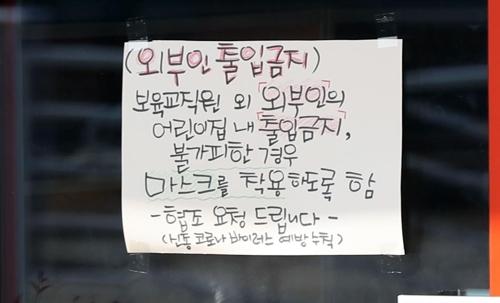 (외부인 출입금지)
보육교직원 외 외부인의
어린이집 내 출입금지,
불가피한 경우
마스크를 착용하도록 함
- 협조 요청 드립니다 -
(신종 코로나 바이러스 예방 수칙)